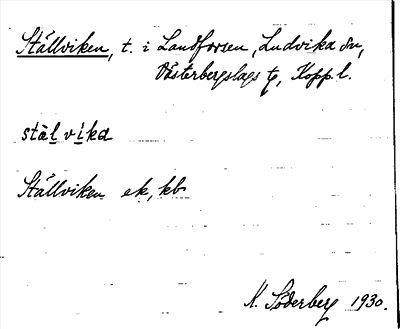 Ställviken, t. i Landforsen, Ludvika sn,
Västerbergslags tg, Kopp. l.
stälvika
Ställviken ek, kb
N. Söderberg 1930.